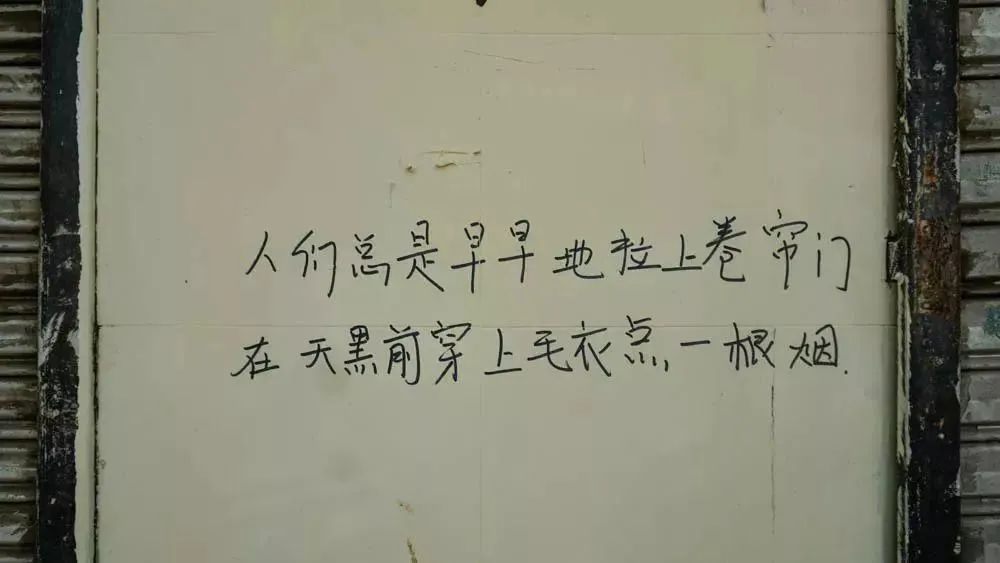 人们总是早早地拉上卷帘门
在天黑前穿上毛衣点一根烟.